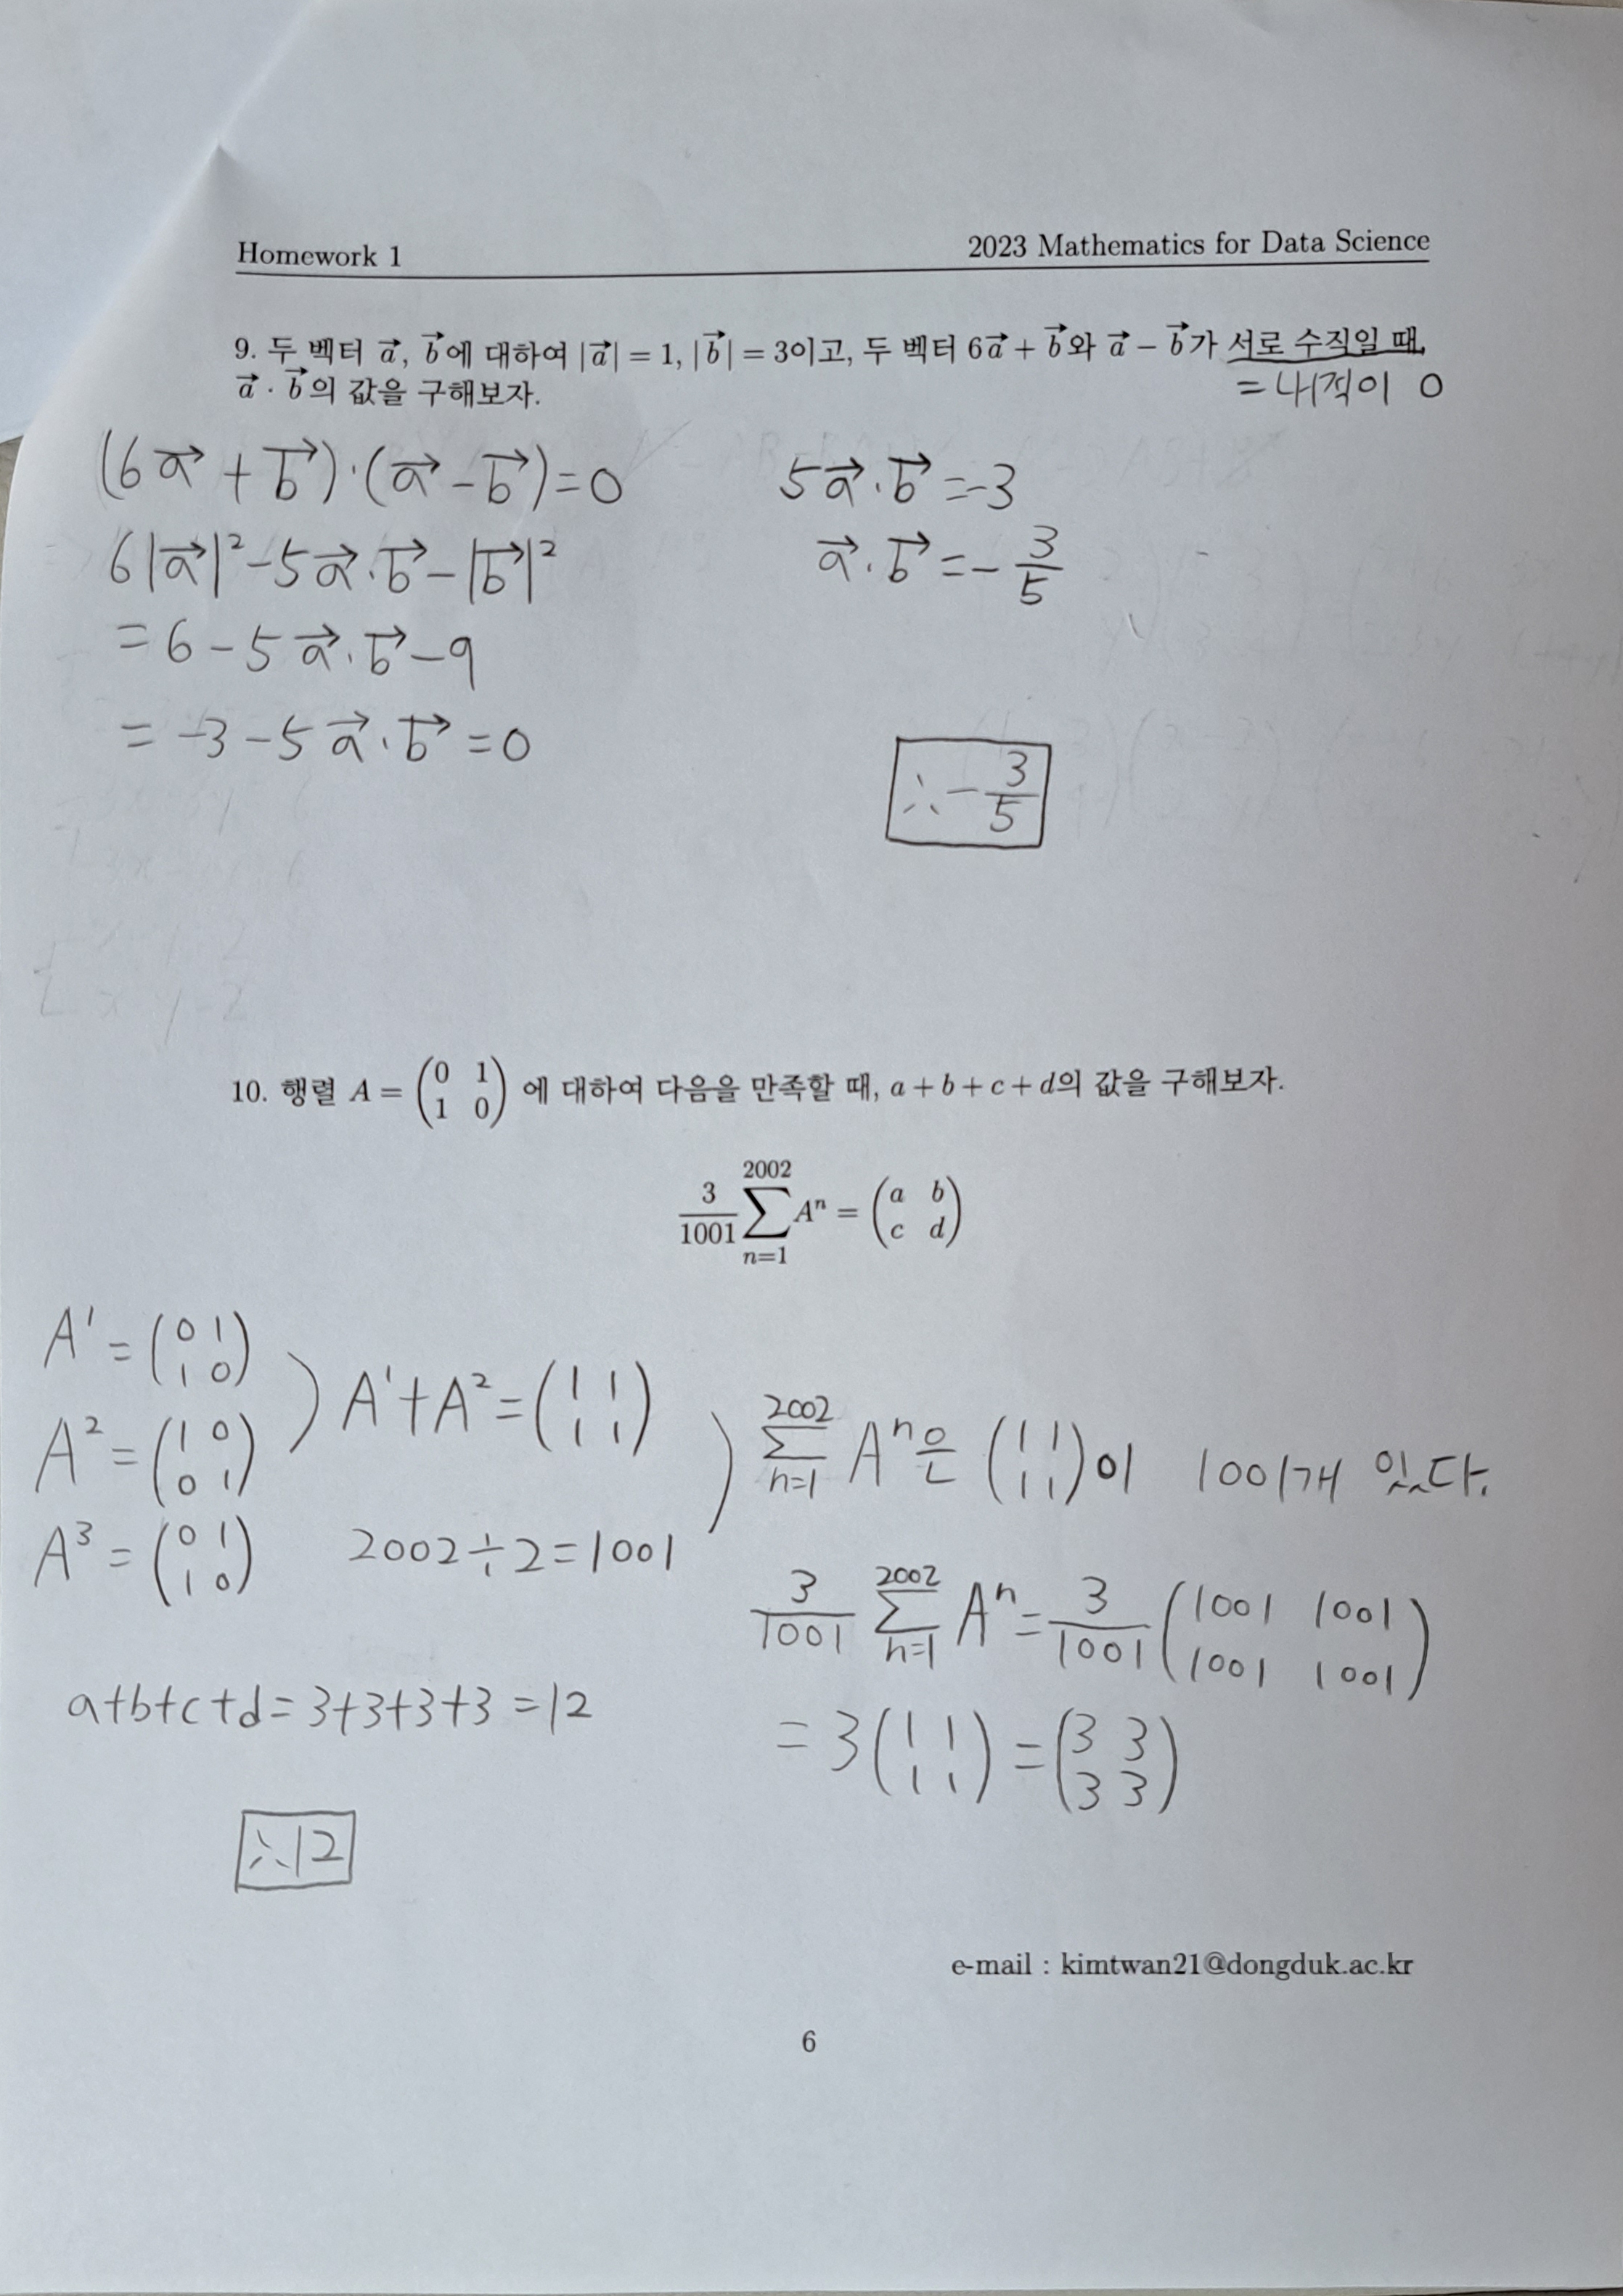 Homework 1
2023 Mathematics for Data Science
9. 두 벡터 $\vec{a}$, $\vec{b}$에 대하여 $|\vec{a}| = 1, |\vec{b}| = 3$이고, 두 벡터 $6\vec{a} + \vec{b}$와 $\vec{a} - \vec{b}$가 서로 수직일 때,
$\vec{a} \cdot \vec{b}$의 값을 구해보자.
= 내적이 0
$(6\vec{a} + \vec{b}) \cdot (\vec{a} - \vec{b}) = 0$
$6|\vec{a}|^2 - 5\vec{a} \cdot \vec{b} - |\vec{b}|^2$
$= 6 - 5\vec{a} \cdot \vec{b} - 9$
$= -3 - 5\vec{a} \cdot \vec{b} = 0$
$5\vec{a} \cdot \vec{b} = -3$
$\vec{a} \cdot \vec{b} = -\frac{3}{5}$
$\therefore -\frac{3}{5}$
10. 행렬 $A = \begin{pmatrix} 0 & 1 \\ 1 & 0 \end{pmatrix}$ 에 대하여 다음을 만족할 때, $a + b + c + d$의 값을 구해보자.
$\frac{3}{1001} \sum_{n=1}^{2002} A^n = \begin{pmatrix} a & b \\ c & d \end{pmatrix}$
$A^1 = \begin{pmatrix} 0 & 1 \\ 1 & 0 \end{pmatrix}$
$A^2 = \begin{pmatrix} 1 & 0 \\ 0 & 1 \end{pmatrix}$
$A^3 = \begin{pmatrix} 0 & 1 \\ 1 & 0 \end{pmatrix}$
$A^1 + A^2 = \begin{pmatrix} 1 & 1 \\ 1 & 1 \end{pmatrix}$
$2002 \div 2 = 1001$
$\sum_{n=1}^{2002} A^n$은 $\begin{pmatrix} 1 & 1 \\ 1 & 1 \end{pmatrix}$이 1001개 있다.
$\frac{3}{1001} \sum_{n=1}^{2002} A^n = \frac{3}{1001} \begin{pmatrix} 1001 & 1001 \\ 1001 & 1001 \end{pmatrix}$
$= 3 \begin{pmatrix} 1 & 1 \\ 1 & 1 \end{pmatrix} = \begin{pmatrix} 3 & 3 \\ 3 & 3 \end{pmatrix}$
$a+b+c+d = 3+3+3+3 = 12$
$\therefore 12$
e-mail : kimtwan21@dongduk.ac.kr
6